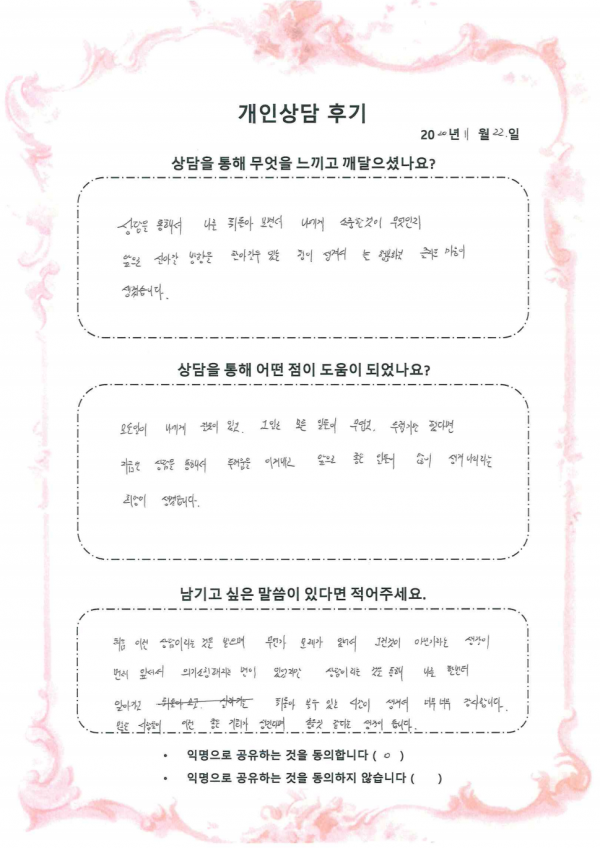 개인상담 후기
2020년 11월 22.일
상담을 통해 무엇을 느끼고 깨달으셨나요?
상담을 통해서 나를 뒤돌아 보면서 나에게 소중한것이 무엇인지
앞으로 살아갈 방향을 찾아갈수 있는 힘이 생겨서 늘 행복하고 마음이
생겼습니다.
상담을 통해 어떤 점이 도움이 되었나요?
모든일이 나에게 있고. 그 모든 일들이 무섭고. 두렵기만 했다면
지금은 상담을 통해서 두려움을 이겨내고 앞으로 좋은 일들이 많이 생겨 나리라는
희망이 생겼습니다.
남기고 싶은 말씀이 있다면 적어주세요.
처음 이런 상담이라는 것을 받으며 무언가 문제가 있어서 그런것이 아닌가라는 생각이
먼저 앞서서 의기소침해지는 면이 있었지만 상담이라는 것을 통해 나를 한번더
뒤돌아 볼수 있는 시간이 생겨서 너무너무 감사합니다.
이런 좋은 기회가 생각이 듭니다.
• 익명으로 공유하는 것을 동의합니다 ( o )
• 익명으로 공유하는 것을 동의하지 않습니다 ( )